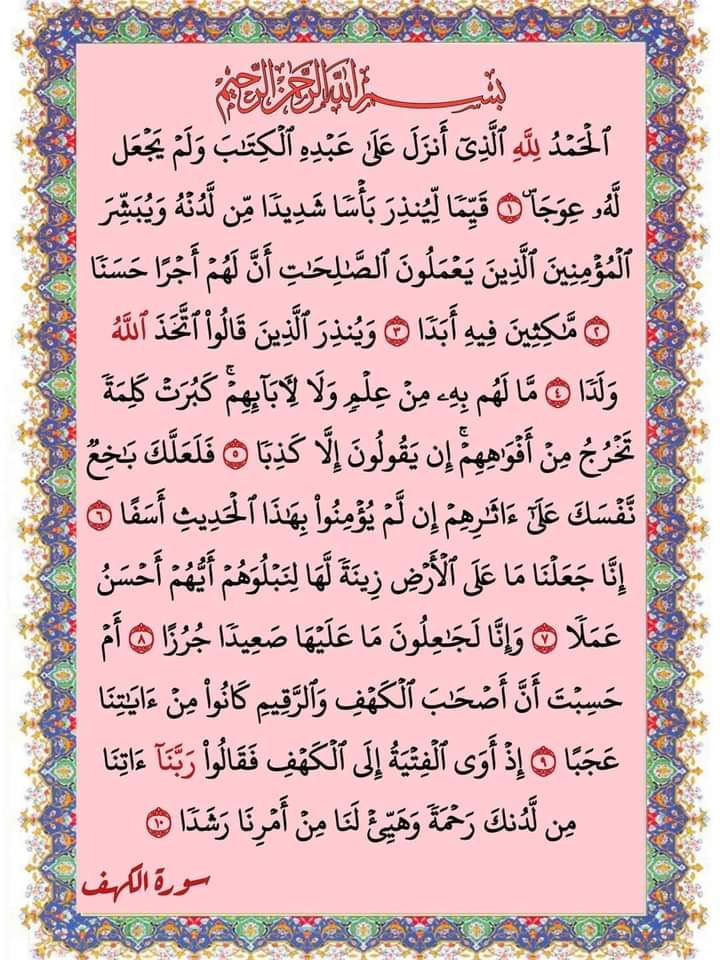 بِسْمِ ٱللَّهِ ٱلرَّحْمَٰنِ ٱلرَّحِيمِ
ٱلْحَمْدُ لِلَّهِ ٱلَّذِىٓ أَنزَلَ عَلَىٰ عَبْدِهِ ٱلْكِتَٰبَ وَلَمْ يَجْعَل
لَّهُۥ عِوَجَاۜ ١ قَيِّمًا لِّيُنذِرَ بَأْسًا شَدِيدًا مِّن لَّدُنْهُ وَيُبَشِّرَ
ٱلْمُؤْمِنِينَ ٱلَّذِينَ يَعْمَلُونَ ٱلصَّٰلِحَٰتِ أَنَّ لَهُمْ أَجْرًا حَسَنًا
٢ مَّٰكِثِينَ فِيهِ أَبَدًا ٣ وَيُنذِرَ ٱلَّذِينَ قَالُوا۟ ٱتَّخَذَ ٱللَّهُ
وَلَدًا ٤ مَّا لَهُم بِهِۦ مِنْ عِلْمٍ وَلَا لِـَٔابَآئِهِمْ ۚ كَبُرَتْ كَلِمَةً
تَخْرُجُ مِنْ أَفْوَٰهِهِمْ ۚ إِن يَقُولُونَ إِلَّا كَذِبًا ٥ فَلَعَلَّكَ بَٰخِعٌ
نَّفْسَكَ عَلَىٰٓ ءَاثَٰرِهِمْ إِن لَّمْ يُؤْمِنُوا۟ بِهَٰذَا ٱلْحَدِيثِ أَسَفًا ٦
إِنَّا جَعَلْنَا مَا عَلَى ٱلْأَرْضِ زِينَةً لَّهَا لِنَبْلُوَهُمْ أَيُّهُمْ أَحْسَنُ
عَمَلًا ٧ وَإِنَّا لَجَٰعِلُونَ مَا عَلَيْهَا صَعِيدًا جُرُزًا ٨ أَمْ
حَسِبْتَ أَنَّ أَصْحَٰبَ ٱلْكَهْفِ وَٱلرَّقِيمِ كَانُوا۟ مِنْ ءَايَٰتِنَا
عَجَبًا ٩ إِذْ أَوَى ٱلْفِتْيَةُ إِلَى ٱلْكَهْفِ فَقَالُوا۟ رَبَّنَآ ءَاتِنَا
مِن لَّدُنكَ رَحْمَةً وَهَيِّئْ لَنَا مِنْ أَمْرِنَا رَشَدًا ١٠
سورة الكهف